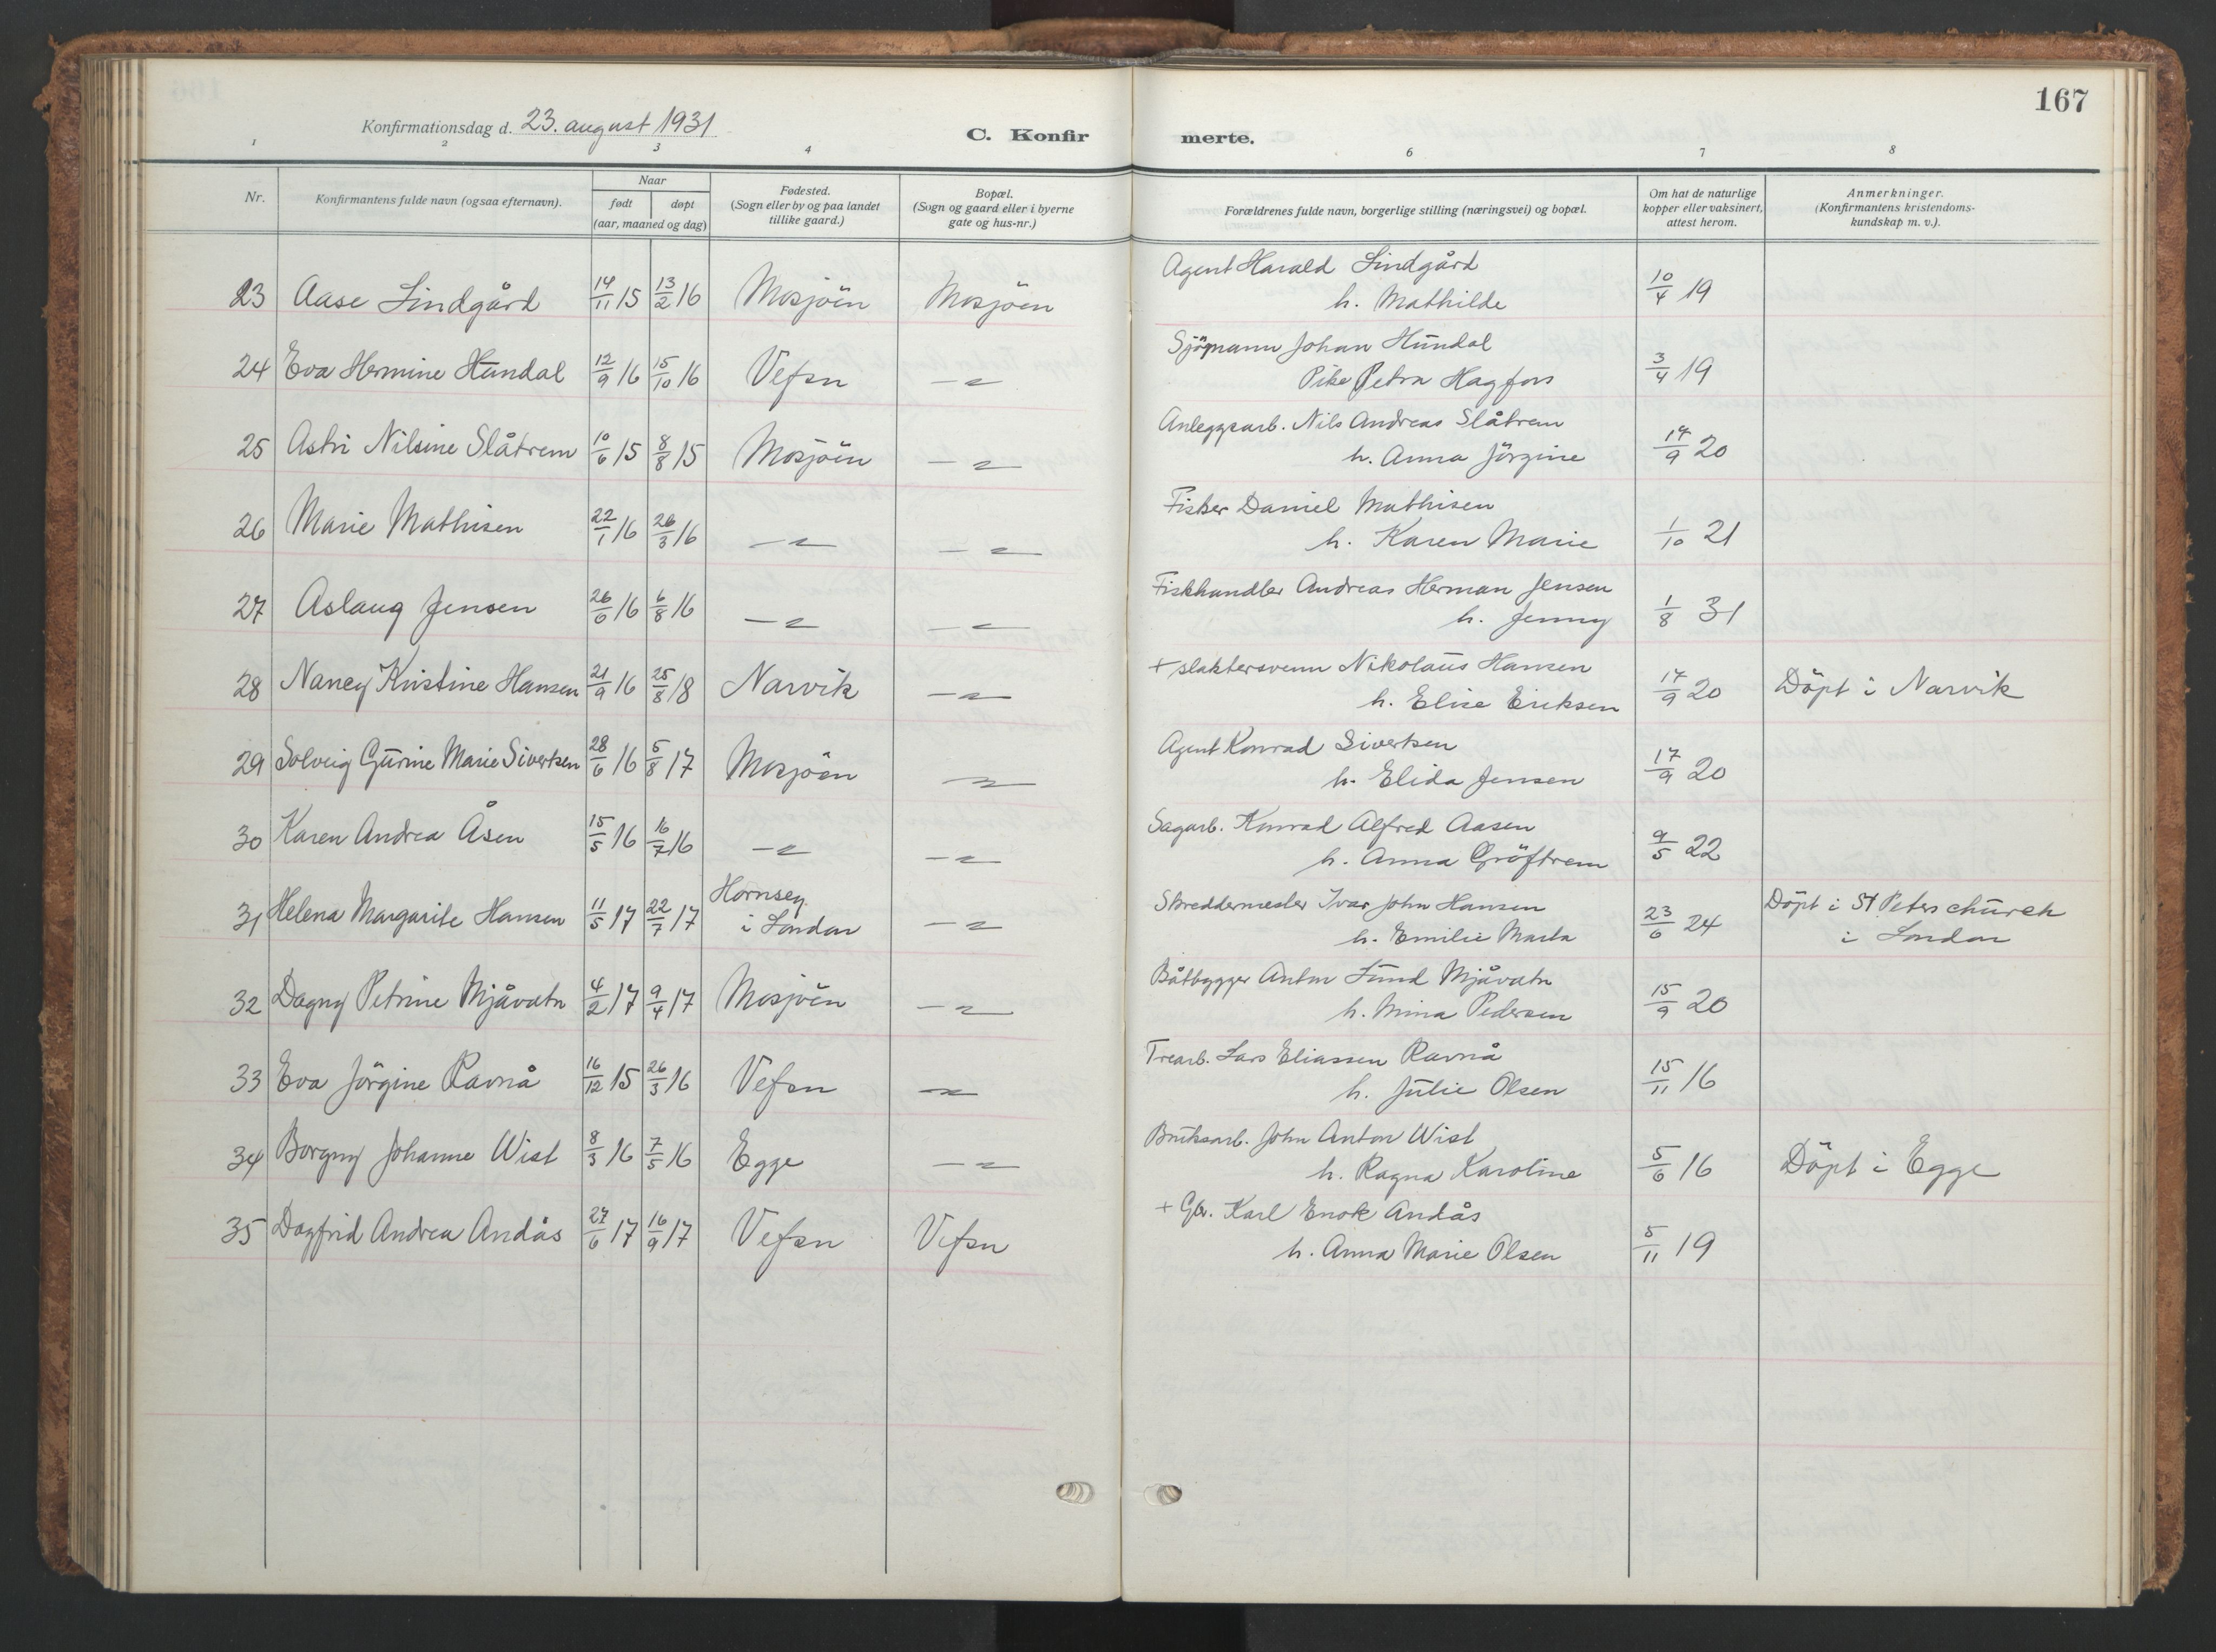 167
Konfirmationsdag d. 23. august 1931
C. Konfir merte.
1 2 3 4 6 7 8
Nr. Konfirmantens fulde navn (ogsaa efternavn). Naar født døpt (aar, maaned og dag) Fødested. (Sogn eller by og paa landet tillike gaard.) Bopæl. (Sogn og gaard eller i byerne gate og hus-nr.) Forældrenes fulde navn, borgerlige stilling (næringsvei) og bopæl. Om hat de naturlige kopper eller vaksinert, attest herom. Anmerkninger. (Konfirmantens kristendoms-kundskap m. v.).
23 Aase Lindgård 14/11 15 13/2 16 Mosjöen Mosjöen Agent Harald Lindgård
h. Mathilde 10/4 19
24 Eva Hermine Hundal 12/9 16 15/10 16 Vefsn —"— Sjömann Johan Hundal
Pike Petra Hagfors 3/4 19
25 Astri Nilsine Slåtrem 10/6 15 8/8 15 Mosjöen —"— Anleggsarb. Nils Andreas Slåtrem
h. Anna Jörgine 14/9 20
26 Marie Mathisen 22/1 16 26/3 16 —"— —"— Fisker Daniel Mathisen
h. Karen Marie 1/10 21
27 Aslaug Jensen 26/6 16 6/8 16 —"— —"— Fiskhandler Andreas Herman Jensen
h. Jenny 1/8 31
28 Nancy Kristine Hansen 21/9 16 25/8 18 Narvik —"— + slaktersvenn Nikolaus Hansen
h. Elise Eriksen 17/9 20 Döpt i Narvik
29 Solveig Gurine Marie Sivertsen 28/6 16 5/8 17 Mosjöen —"— Agent Konrad Sivertsen
h. Elida Jensen 17/9 20
30 Karen Andrea Åsen 15/5 16 16/7 16 —"— —"— Sagarb. Konrad Alfred Aasen
h. Anna Gröftrem 9/5 22
31 Helena Margarite Hansen 11/5 17 22/7 17 Hornsey
i London —"— Skreddermester Ivar John Hansen
h. Emilie Marta 23/6 24 Döpt i St Peters church
i London
32 Dagny Petrine Mjåvatn 4/2 17 9/4 17 Mosjöen —"— Båtbygger Anton Lund Mjåvatn
h. Mina Pedersen 15/9 20
33 Eva Jörgine Ravnå 16/12 15 26/3 16 Vefsn —"— Trearb. Lars Eliassen Ravnå
h. Julie Olsen 15/11 16
34 Borgny Johanne Wist 8/3 16 7/5 16 Egge —"— Bruksarb. John Anton Wist
h. Ragna Karoline 5/6 16 Döpt i Egge
35 Dagfrid Andrea Andås 27/6 17 16/9 17 Vefsn Vefsn + Gbr. Karl Enok Andås
h. Anna Marie Olsen 5/11 19